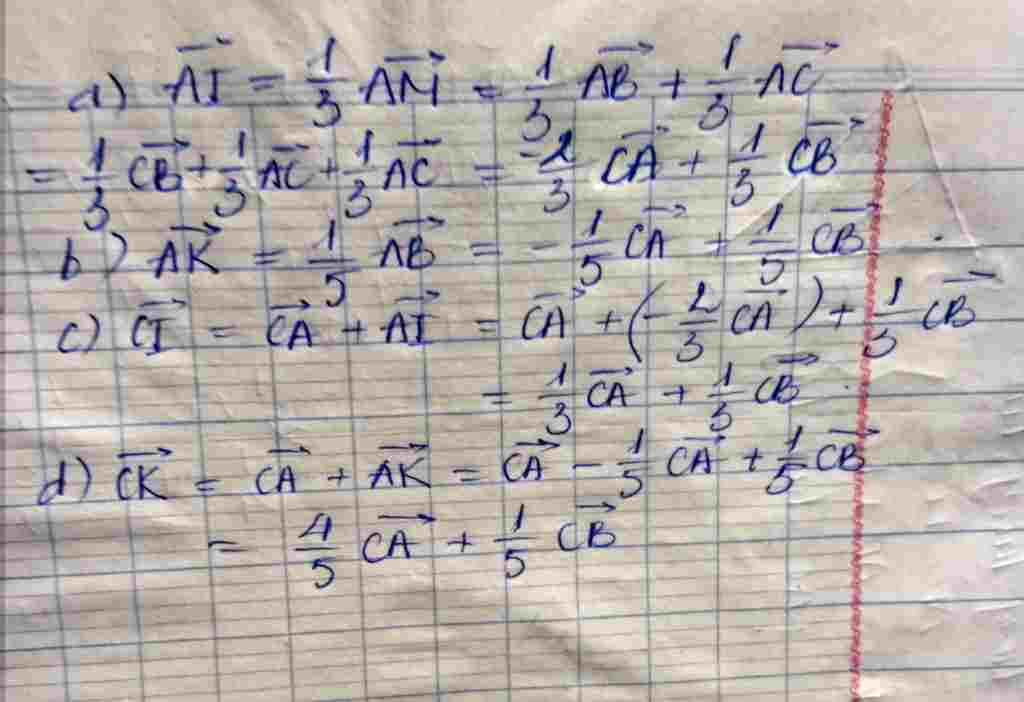 a) $\overrightarrow{AI} = \frac{1}{3}\overrightarrow{AM} = \frac{1}{3}\overrightarrow{AB} + \frac{1}{3}\overrightarrow{AC}$
$= \frac{1}{3}\overrightarrow{CB} + \frac{1}{3}\overrightarrow{AC} + \frac{1}{3}\overrightarrow{AC} = \frac{-2}{3}\overrightarrow{CA} + \frac{1}{3}\overrightarrow{CB}$
b) $\overrightarrow{AK} = \frac{1}{5}\overrightarrow{AB} = -\frac{1}{5}\overrightarrow{CA} + \frac{1}{5}\overrightarrow{CB}$.
c) $\overrightarrow{CI} = \overrightarrow{CA} + \overrightarrow{AI} = \overrightarrow{CA} + \left(-\frac{2}{3}\overrightarrow{CA}\right) + \frac{1}{3}\overrightarrow{CB}$
$= \frac{1}{3}\overrightarrow{CA} + \frac{1}{3}\overrightarrow{CB}$.
d) $\overrightarrow{CK} = \overrightarrow{CA} + \overrightarrow{AK} = \overrightarrow{CA} - \frac{1}{5}\overrightarrow{CA} + \frac{1}{5}\overrightarrow{CB}$
$= \frac{4}{5}\overrightarrow{CA} + \frac{1}{5}\overrightarrow{CB}$